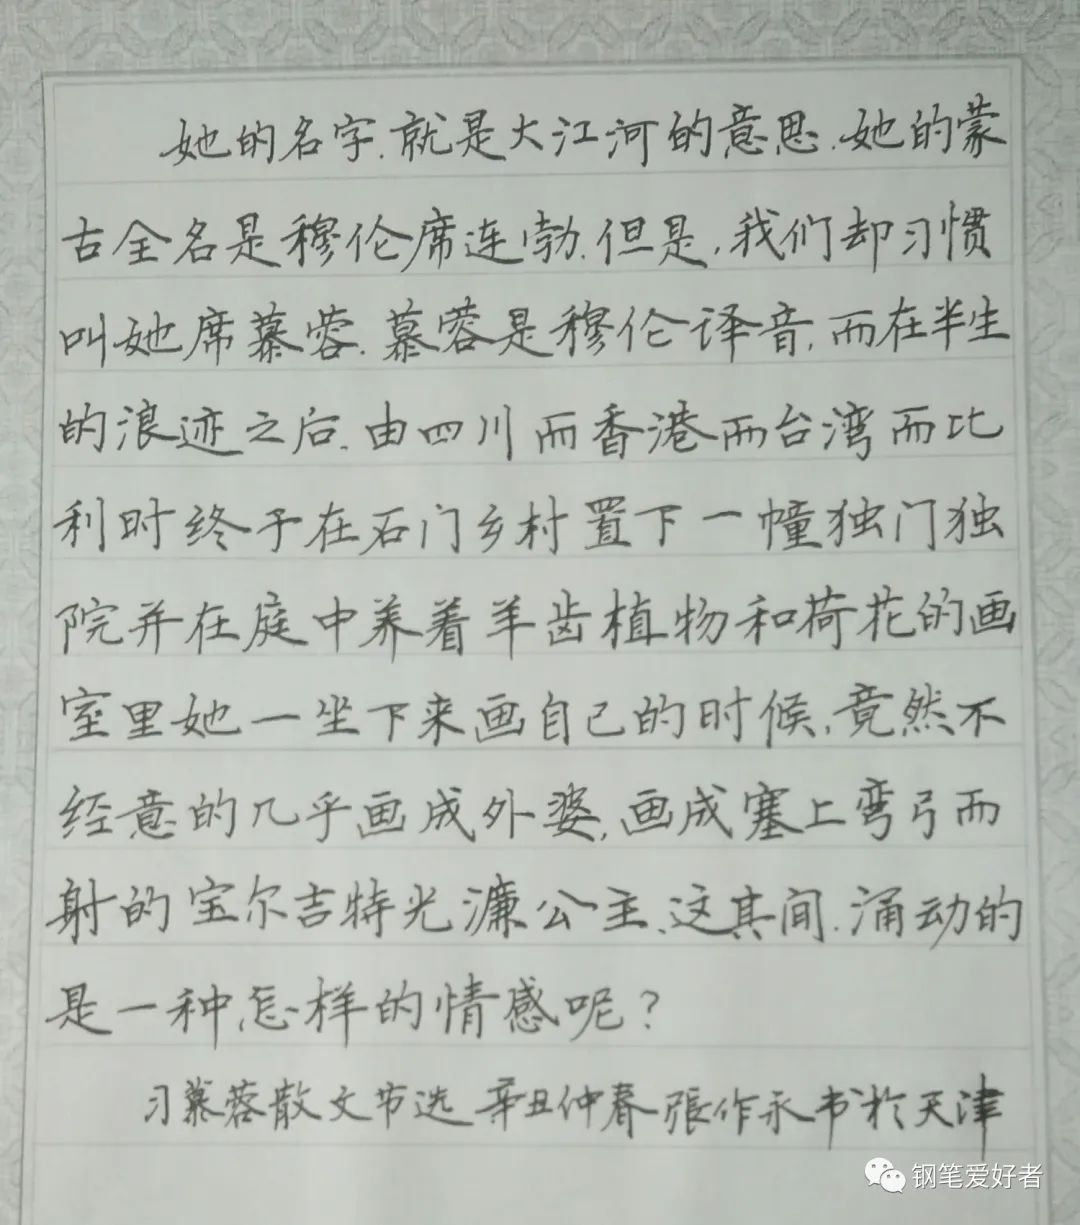 她的名字.就是大江河的意思.她的蒙
古全名是穆伦席连勃.但是,我们却习惯
叫她席慕蓉.慕蓉是穆伦译音,而在半生
的浪迹之后.由四川而香港而台湾而比
利时终于在石门乡村置下一幢独门独
院并在庭中养着羊齿植物和荷花的画
室里她一坐下来画自己的时候,竟然不
经意的几乎画成外婆,画成塞上弯弓而
射的宝尔吉特光濂公主.这其间.涌动的
是一种怎样的情感呢?
习慕蓉散文节选 辛丑仲春張作永书於天津
钢笔爱好者